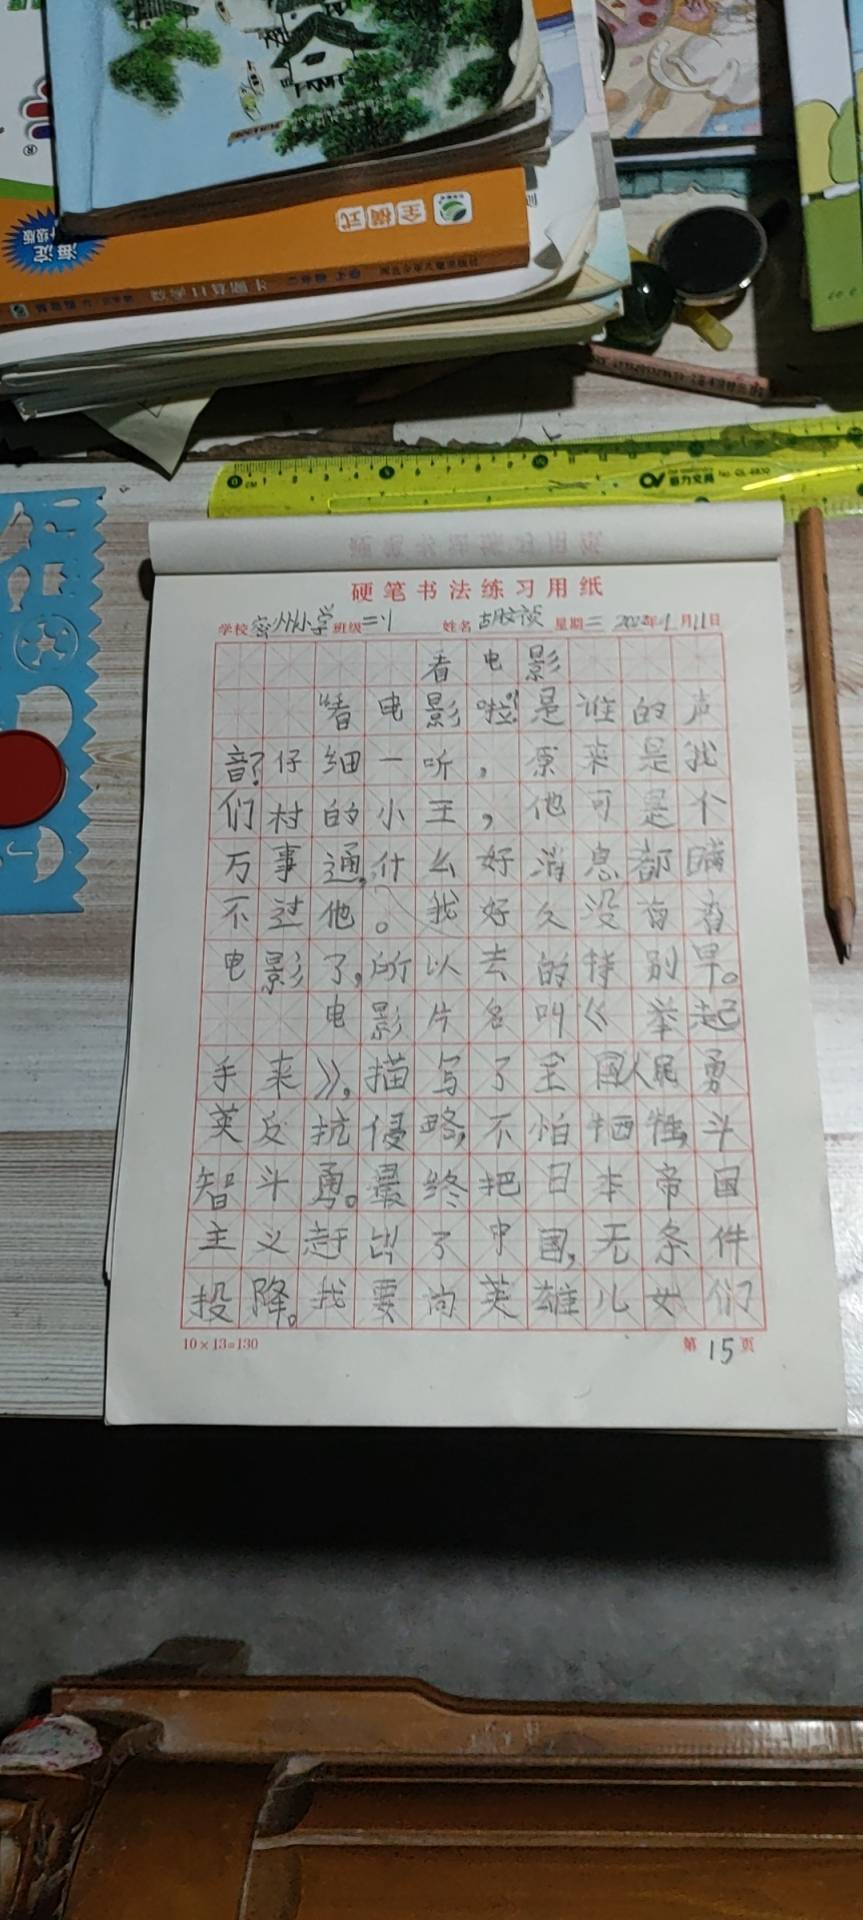 全横式
硬笔书法练习用纸
学校 密州小学 班级 二1 姓名 星期二 年 月11日
看电影
“看电影啦!”是谁的声
音?仔细一听,原来是我
们村的小王,他可是个
万事通,什么好消息都瞒
不过他。我好久没有看
电影了,所以去的特别早。
电影片名叫《举起
手来》,描写了全国人民勇
英反抗侵略,不怕牺牲,斗
智斗勇。最终把日本帝国
主义赶出了中国,无条件
投降。我要向英雄儿女们
10×13=130
第15页